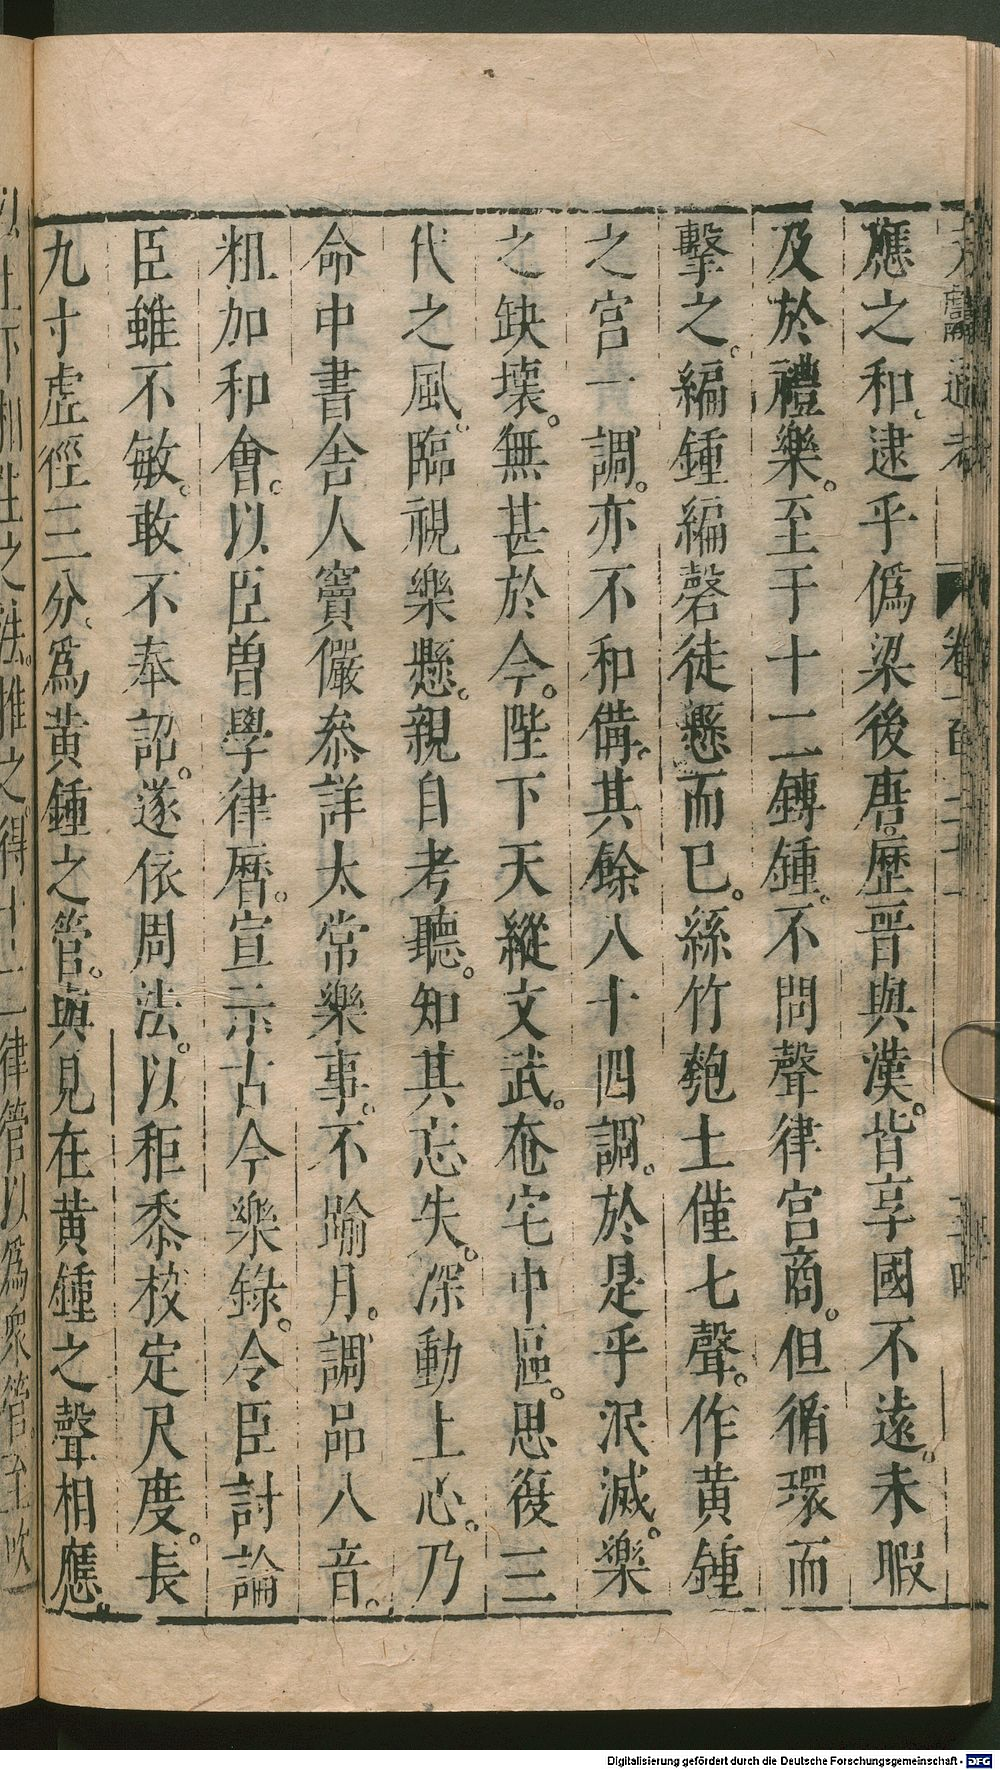 文獻通考 卷一百三十一
應之和逮乎僞梁後唐。歷晋與漢。皆享國不遠。未暇
及於禮樂。至于十二鏄鍾。不問聲律宮商。但循環而
擊之。編鍾編磬徒懸而已。絲竹匏土僅七聲。作黄鍾
之宫一調。亦不和備。其餘八十四調。於是乎泯滅。樂
之缺壞。無甚於今。陛下天縱文武。奄宅中區。思復三
代之風。臨視樂懸。親自考聽。知其忘失。深動上心。乃
命中書舍人竇儼叅詳太常樂事。不踰月。調品八音。
粗加和會。以臣曽學律曆。宣示古今樂錄。令臣討論
臣雖不敏。敢不奉詔。遂依周法。以秬黍校定尺度。長
九寸虛徑三分。爲黄鍾之管。與見在黄鍾之聲相應。
以上下相生之法。推之。得十二律管以爲衆管。至吹
Digitalisierung gefördert durch die Deutsche Forschungsgemeinschaft - DFG